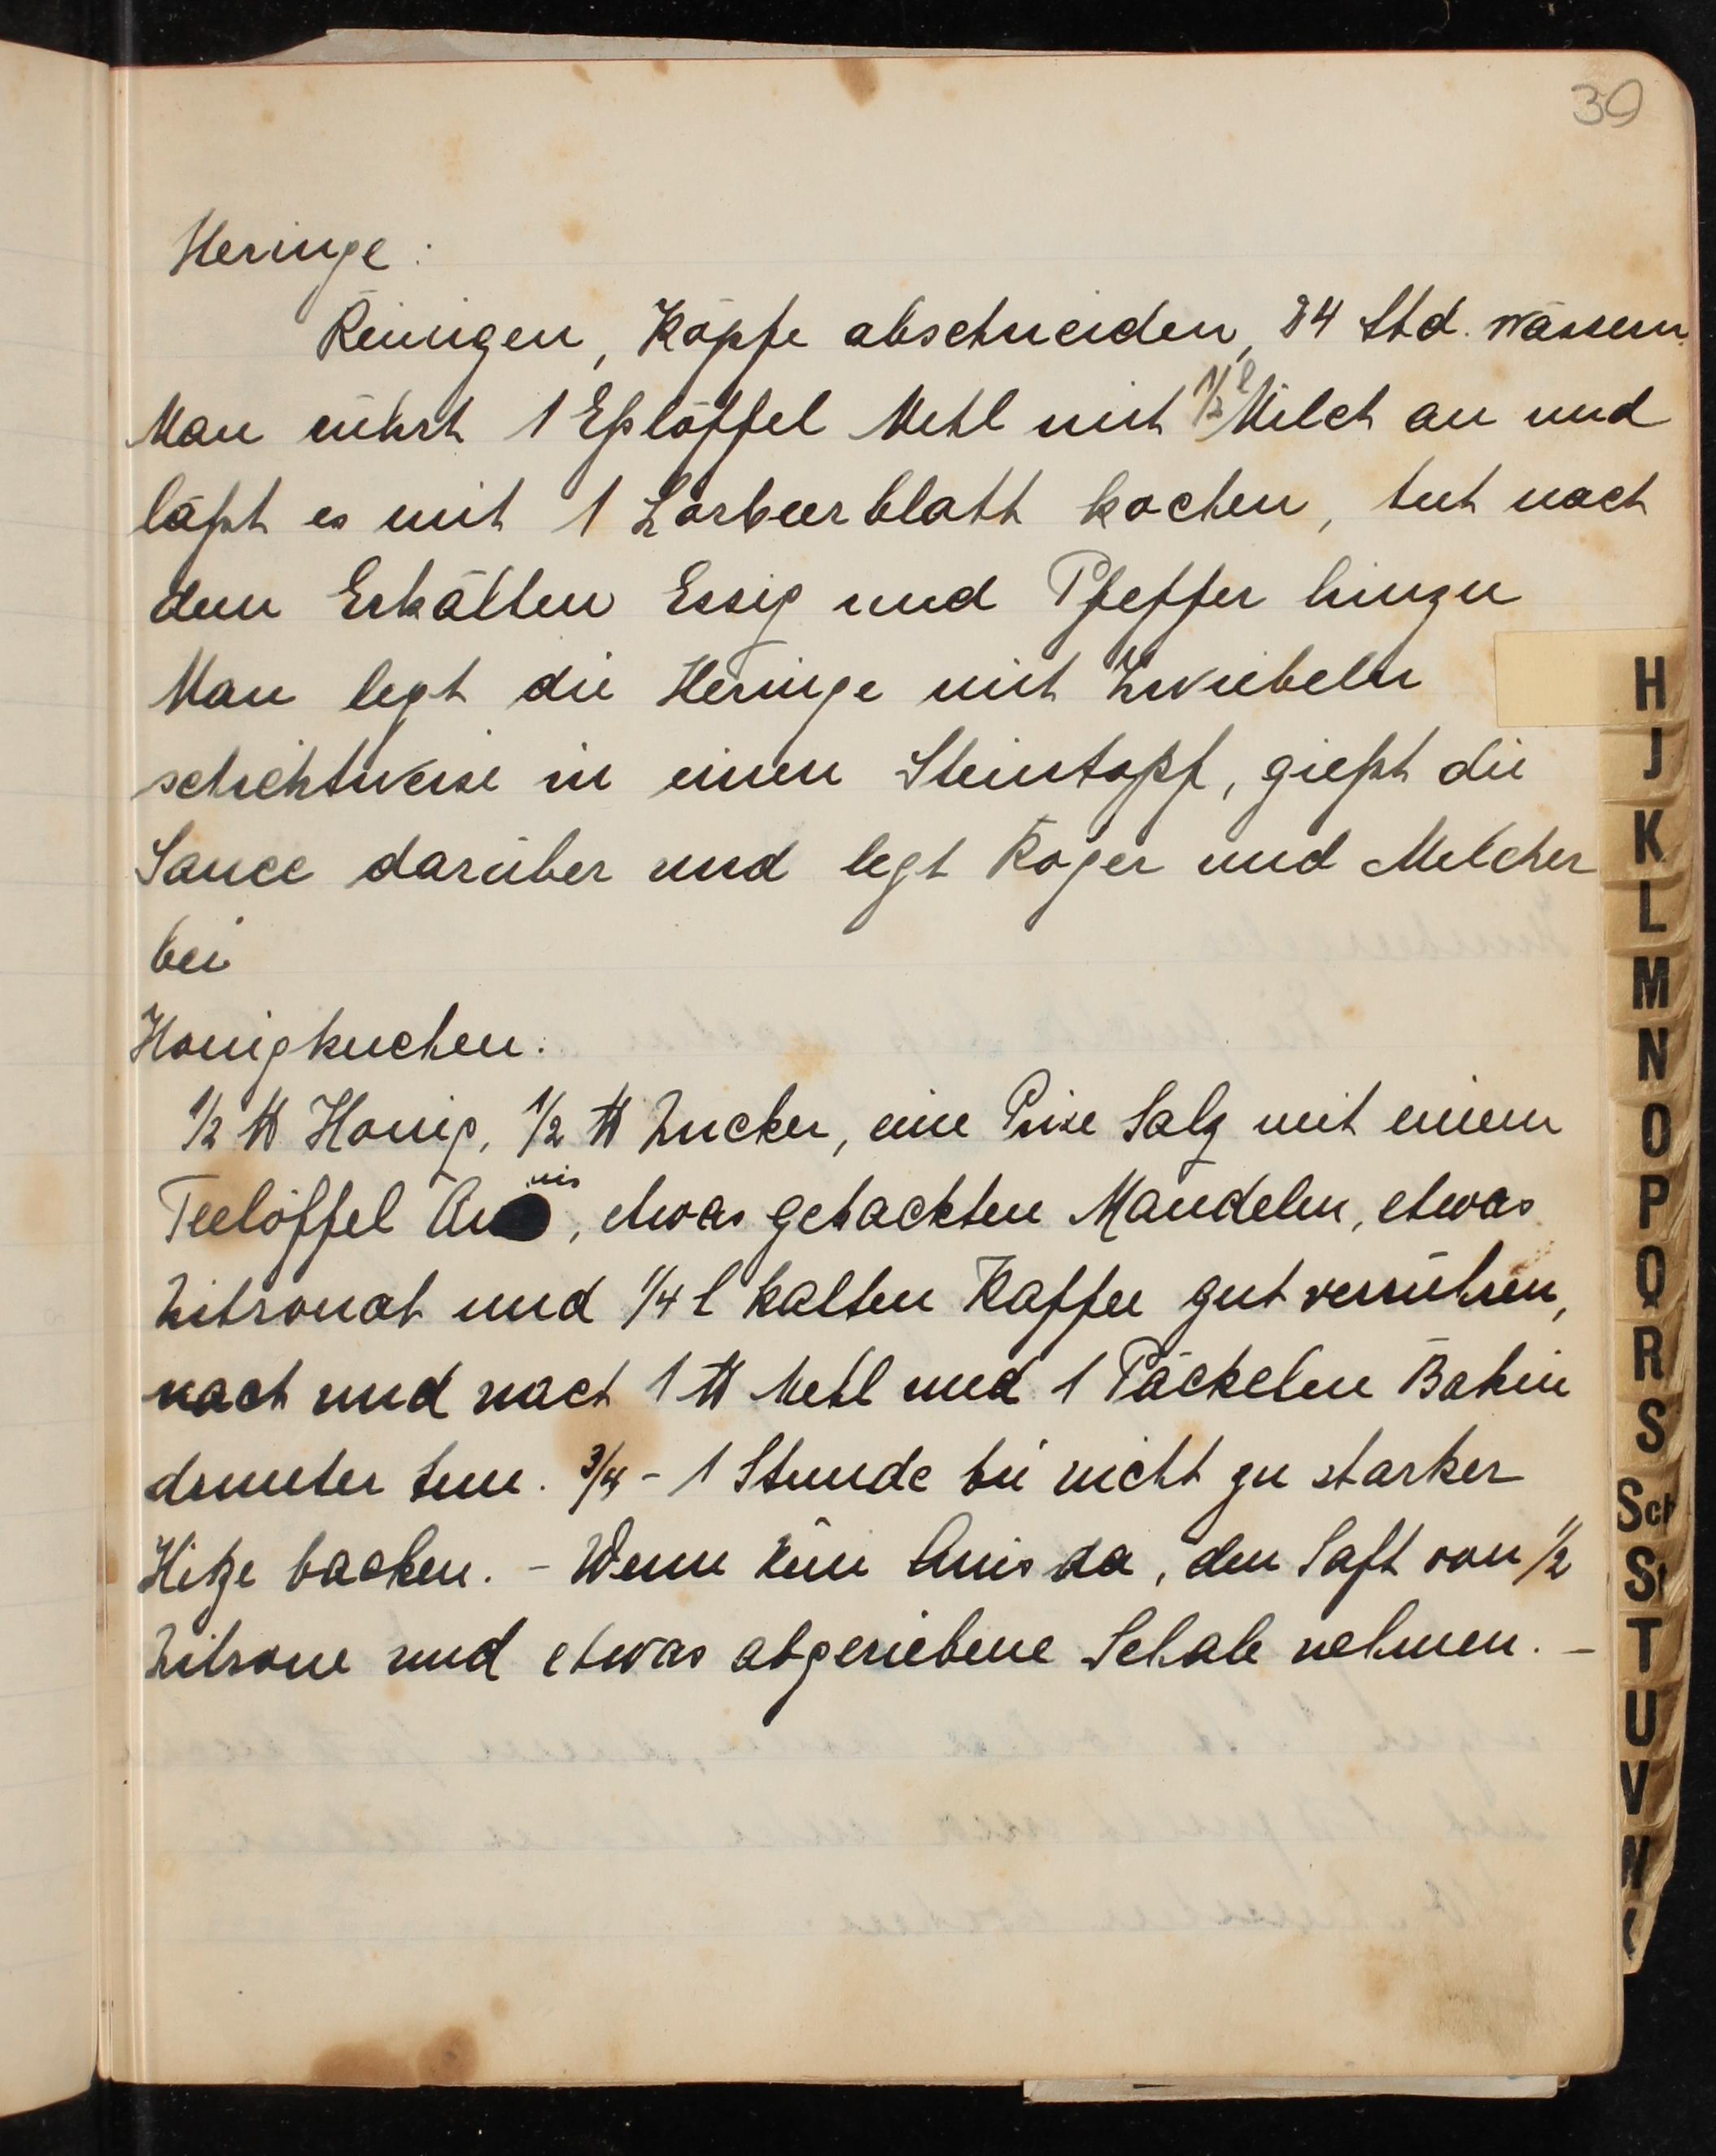 39
Heringe:
Reinigen, Köpfe abschneiden, 24 Std. wässern.
Man rührt 1 Eßlöffel Mehl mit 1/2 l Milch an und
läßt es mit 1 Lorbeerblatt kochen, tut nach
dem Erkälten Essig und Pfeffer hinzu
Man legt die Heringe mit Zwiebeln
schichtweise in einen Steintopf, gießt die
Sauce darüber und legt Roger und Melcher
bei
Honigkuchen.
1/2 ℔ Honig, 1/2 ℔ Zucker, eine Prise Salz mit einem
Teelöffel Anis, etwas gehackten Mandeln, etwas
Zitronat und 1/4 l kalten Kaffee gut verrühren,
nach und nach 1 ℔ Mehl und 1 Päckchen Bakin
drunter tun. 3/4 - 1 Stunde bei nicht zu starker
Hitze backen. - Wenn kein Anis da, den Saft von 1/2
Zitrone und etwas abgeriebene Schale nehmen. -
H
J
K
L
M
N
O
P
Q
R
S
Sch
St
T
U
V
W